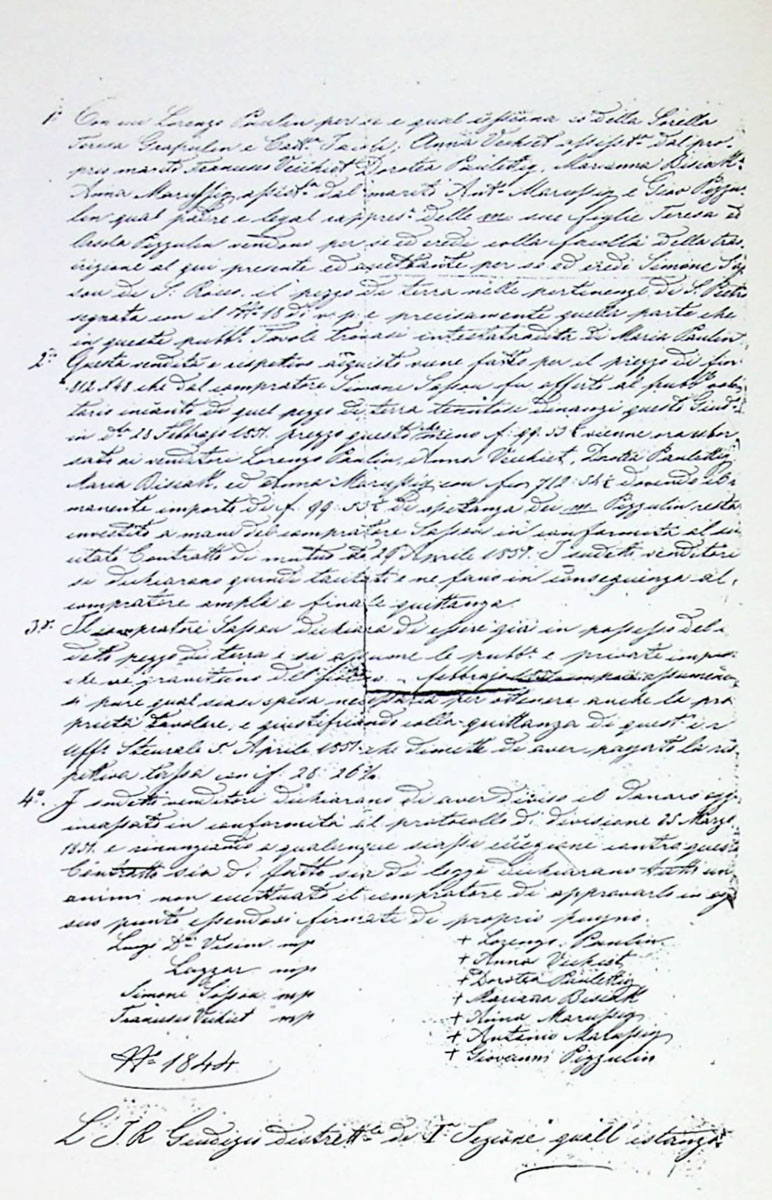 1º Con cui Lorenzo Paulin per se e qual della Sorella
Teresa Grapulin e Catt.ª Jacob; Anna Vechiet assist.ª dal pro-
prio marito Francesco Vechiet Dorotea Paulettig, Marianna Bisiak
Anna Marussig assist.ª dal marito Ant.º Marussig e Giov Pizzu-
lin qual padre e legal rappres.e delle m. sue figlie Teresa ed
Orsola Pizzulin vendono per se ed eredi colla facoltà della tras-
crizione al qui presente ed accettante per se ed eredi Simone Sos-
sou di S. Rocco, il pezzo di terra nelle pertinenze di S. Pietro
segnata con il Nº 18 di e precisamente quella parte che
in queste pubb.e Tavole trovasi intestata a ditta di Maria Paulin.
2º Questa vendita e rispettivo acquisto viene fatto per il prezzo di fior
812 che dal compratore Simone Sossou fu offerto al pubb.º volon-
tario incanto di quel pezzo di terra tenutosi dinanzi questo Giud.º
in d.to 23 Febbrajo 1857. prezzo questo meno f. 99. 53 viene ora esbor-
sato ai venditori Lorenzo Paulin, Anna Vechiet, Dorotea Paulettig
Maria Bisiak, ed Anna Marussig con fior 712 dovendo il ri-
manente importo di f. 99. 53 di spettanza dei m. Pizzulin resta
investito a mani del compratore Sossou in conformità al ci-
tato Contratto di mutuo dd 29 Aprile 1857. I sudetti venditori
si dichiarano quindi tacitati e ne fano in conseguenza al
compratore ampla e finale quittanza.
3º Il compratore Sossou dichiara di essere già in possesso del
detto pezzo di terra e si assume le pubb.e e private impos-
che vi gravitano del febbrajo assumendo-
si pure qualsiasi spesa necessaria per ottenere anche la pro-
prietà tavolare, e giustificando colla quittanza di quest' i r
Uff.º Steurale 5. Aprile 1857. che dimette di aver pagato la ris-
pettiva tassa con f. 28. 26
4º. I sudetti venditori dichiarano di aver diviso il danaro oggi
incassato in conformità al protocollo di divisione 25 Marzo
1857. e rinunziando a qualunque siasi eccezione contro questo
Contratto sia di fatto sia di legge dichiarano tutti un-
animi non eccettuato il compratore di approvarlo in ogni
suo punto essendosi firmati di proprio pugno.
Luigi D.r Visini mp
Luzzar mp
Simone Sossou mp
Francesco Vechiet mp
+ Lorenzo Paulin
+ Anna Vechiet
+ Dorotea Paulettig
+ Mariana Bisiak
+ Anna Marussig
+ Antonio Marussig
+ Giovanni Pizzulin
Nº 1844
L' I R Giudizio distrett.le di I.ª Sezione quall' istanza